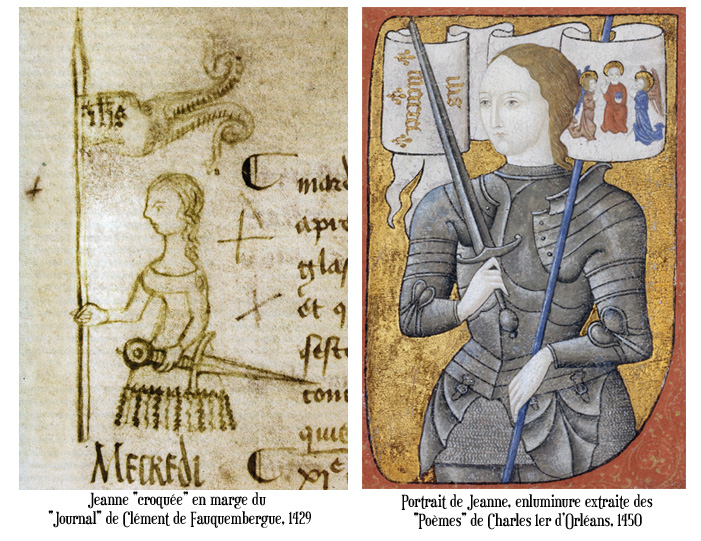 ihs
mard
apre
et q
MECREDI
Jeanne "croquée" en marge du
"Journal" de Clément de Fauquembergue, 1429
Portrait de Jeanne, enluminure extraite des
"Poèmes" de Charles 1er d'Orléans, 1450